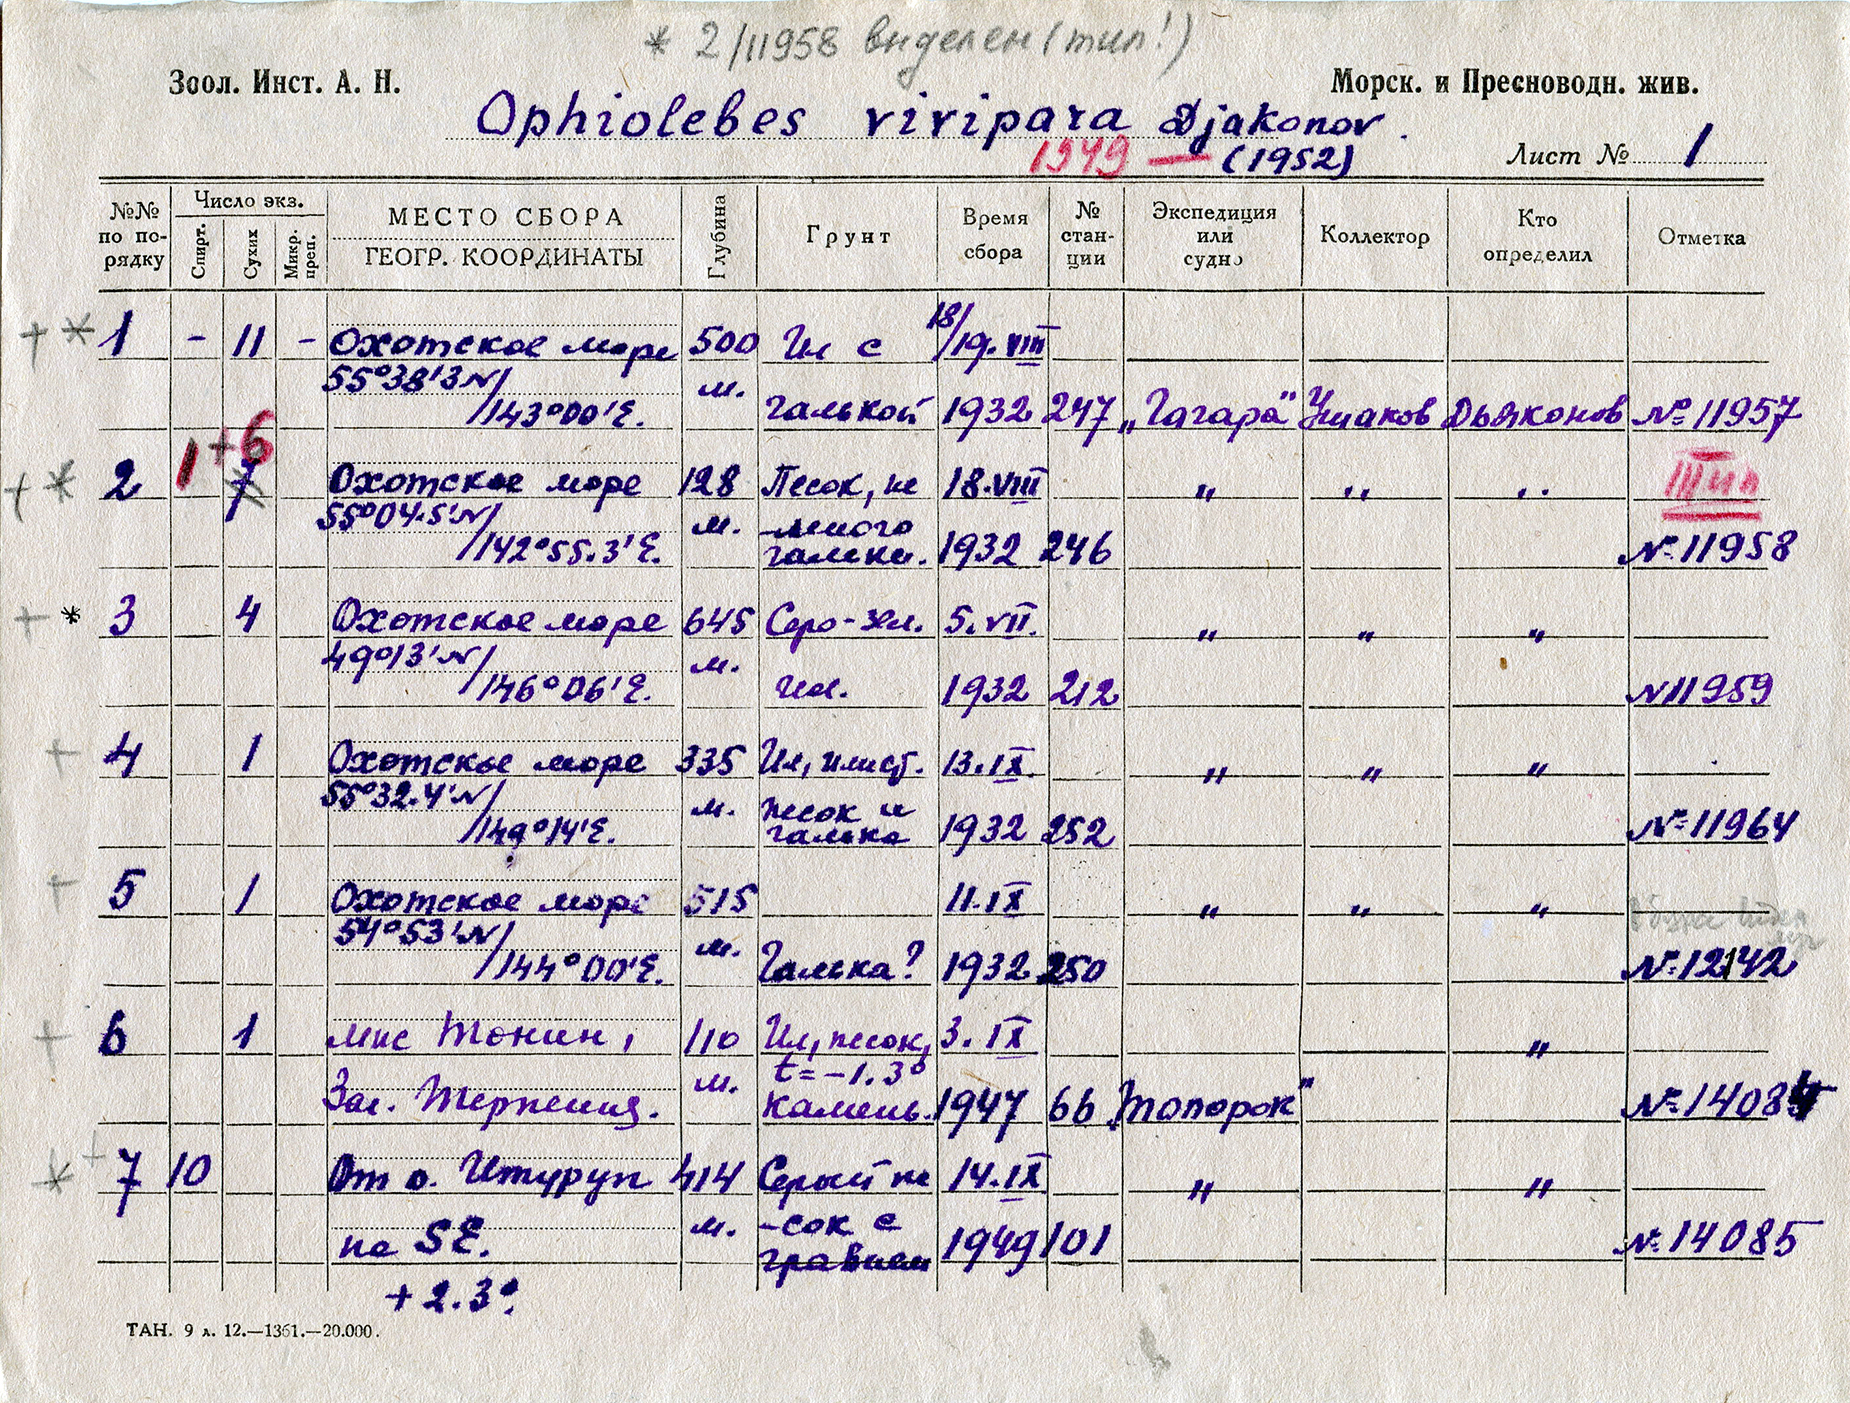 * 2/11958 выделен (тип!)
Зоол. Инст. А. Н.
Морск. и Пресноводн. жив.
Ophiolebes vivipara Djakonov.
1949 — (1952)
Лист № 1
№№ по по-рядку
Число экз.
Спирт.
Сухих
Микр. преп.
МЕСТО СБОРА
ГЕОГР. КООРДИНАТЫ
Глубина
Грунт
Время сбора
№ стан-ции
Экспедиция или судно
Коллектор
Кто определил
Отметка
+ * 1 - 11 - Охотское море 500 Ил с 18/19.VIII
55°38'3 N/ м.
/143°00'E. галькой 1932 247 „Гагара" Ушаков Дьяконов № 11957
1+6
+ * 2 7 Охотское море 128 Песок, не 18.VIII „ „ „ Тип
55°04.5'N/ м. -много
/142°55.3'E. гальки. 1932 246 № 11958
+ * 3 4 Охотское море 645 Серо-зел. 5.VII. „ „ „
49°13'N/ м.
/146°06'E. ил. 1932 212 N 11959
+ 4 1 Охотское море 335 Ил, илист. 13.IX. „ „ „
55°32.4'N/ м. песок и
/149°14'E. галька 1932 252 № 11964
+ 5 1 Охотское море 515 11.IX „ „ „
54°53'N/ м.
/144°00'E. Галька? 1932 250 № 12142
+ 6 1 мыс Тонин, 110 Ил, песок, 3.IX „
t=-1.3°
Зал. Терпения. м. камень. 1947 66 „Топорок" № 14084
* + 7 10 От о. Итуруп 414 Серый пе 14.IX „ „
на SE. м. -сок с
гравием 1949 101 № 14085
+2.3°.
ТАН. 9 л. 12.—1361.—20.000.